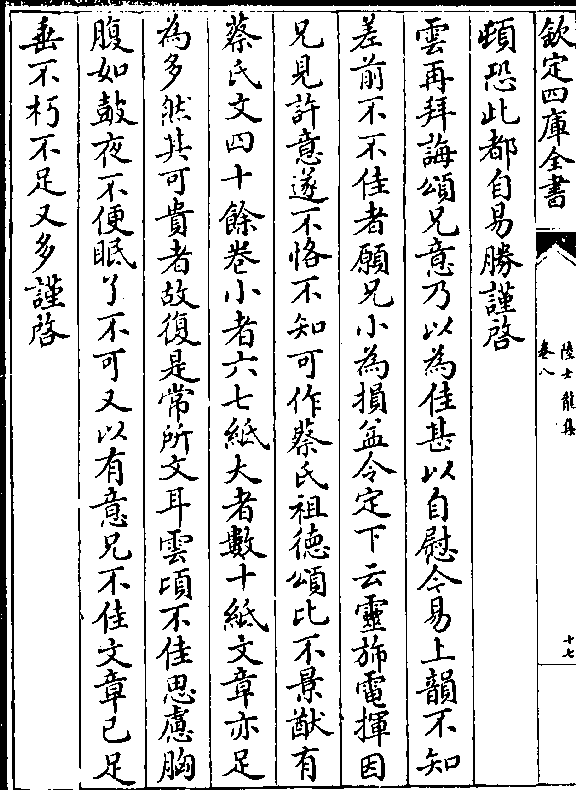 欽定四庫全書
陸士龍集
卷八
十七
頓恐此都自易勝謹啓
雲再拜誨頌兄意乃以為佳甚以自慰今易上韻不知
差前不不佳者願兄小為損益令定下云靈旆電揮因
兄見許意遂不恪不知可作蔡氏祖德頌比不景猷有
蔡氏文四十餘卷小者六七紙大者數十紙文章亦足
為多然其可貴者故復是常所文耳雲頃不佳思慮胸
腹如鼓夜不便眠了不可又以有意兄不佳文章已足
垂不朽不足又多謹啓